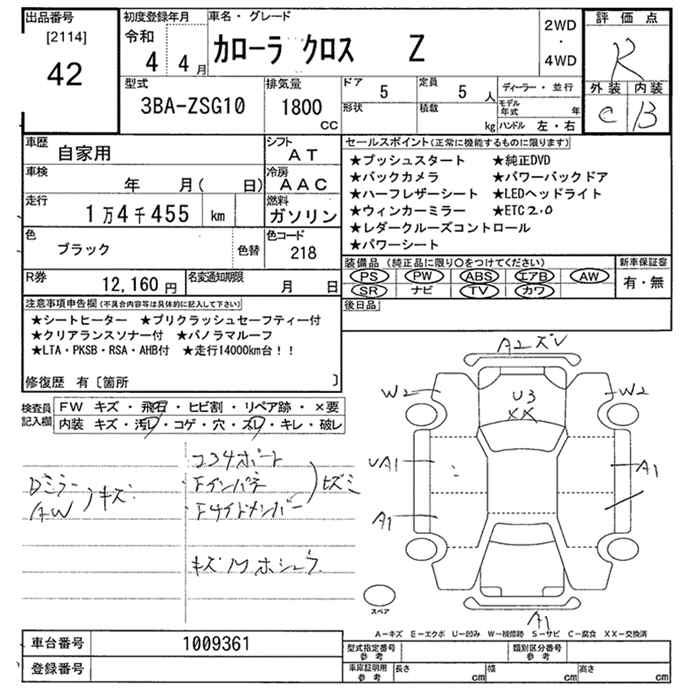 出品番号
[2114]
42
初度登録年月
令和
4 4月
車名・グレード
カローラ クロス Z
2WD
・
4WD
評価点
R
外装 内装
C B
型式
3BA-ZSG10
排気量
1800
CC
ドア 5
形状
定員 5 人
積載 kg
ディーラー・並行
モデル年式 年
ハンドル 左・右
車歴
自家用
シフト
AT
車検
年 月( 日)
冷房
AAC
走行
1万4千455 km
燃料
ガソリン
色
ブラック
色替
色コード
218
R券
12,160円
名変通知期限
月 日
セールスポイント(正常に機能するものに限ります)
★プッシュスタート ★純正DVD
★バックカメラ ★パワーバックドア
★ハーフレザーシート ★LEDヘッドライト
★ウィンカーミラー ★ETC2.0
★レダークルーズコントロール
★パワーシート
装備品(純正品に限り○をつけてください)
PS PW ABS エアB AW
SR ナビ TV カワ
新車保証書
有・無
後日品
注意事項申告欄(不具合内容等は具体的に記入して下さい)
★シートヒーター ★プリクラッシュセーフティー付
★クリアランスソナー付 ★パノラマルーフ
★LTA・PKSB・RSA・AHB付 ★走行14000km台!!
修復歴 有[箇所 ]
検査員
記入欄
FW キズ・飛石・ヒビ割・リペア跡・×要
内装 キズ・汚レ・コゲ・穴・スレ・キレ・破レ
コアサポート
Fインパネ
Fサイドメンバー
ヒズミ
Dミラー
AW
キズ
A2ズレ
W2
W2
U3
XX
UA1
A1
A1
A1
スペア
A-キズ E-エクボ U-凹み W-補修跡 S-サビ C-腐食 XX-交換済
車台番号 1009361
登録番号
型式指定番号
参考
類別区分番号
参考
車庫証明用
参考
長さ cm
幅 cm
高さ cm